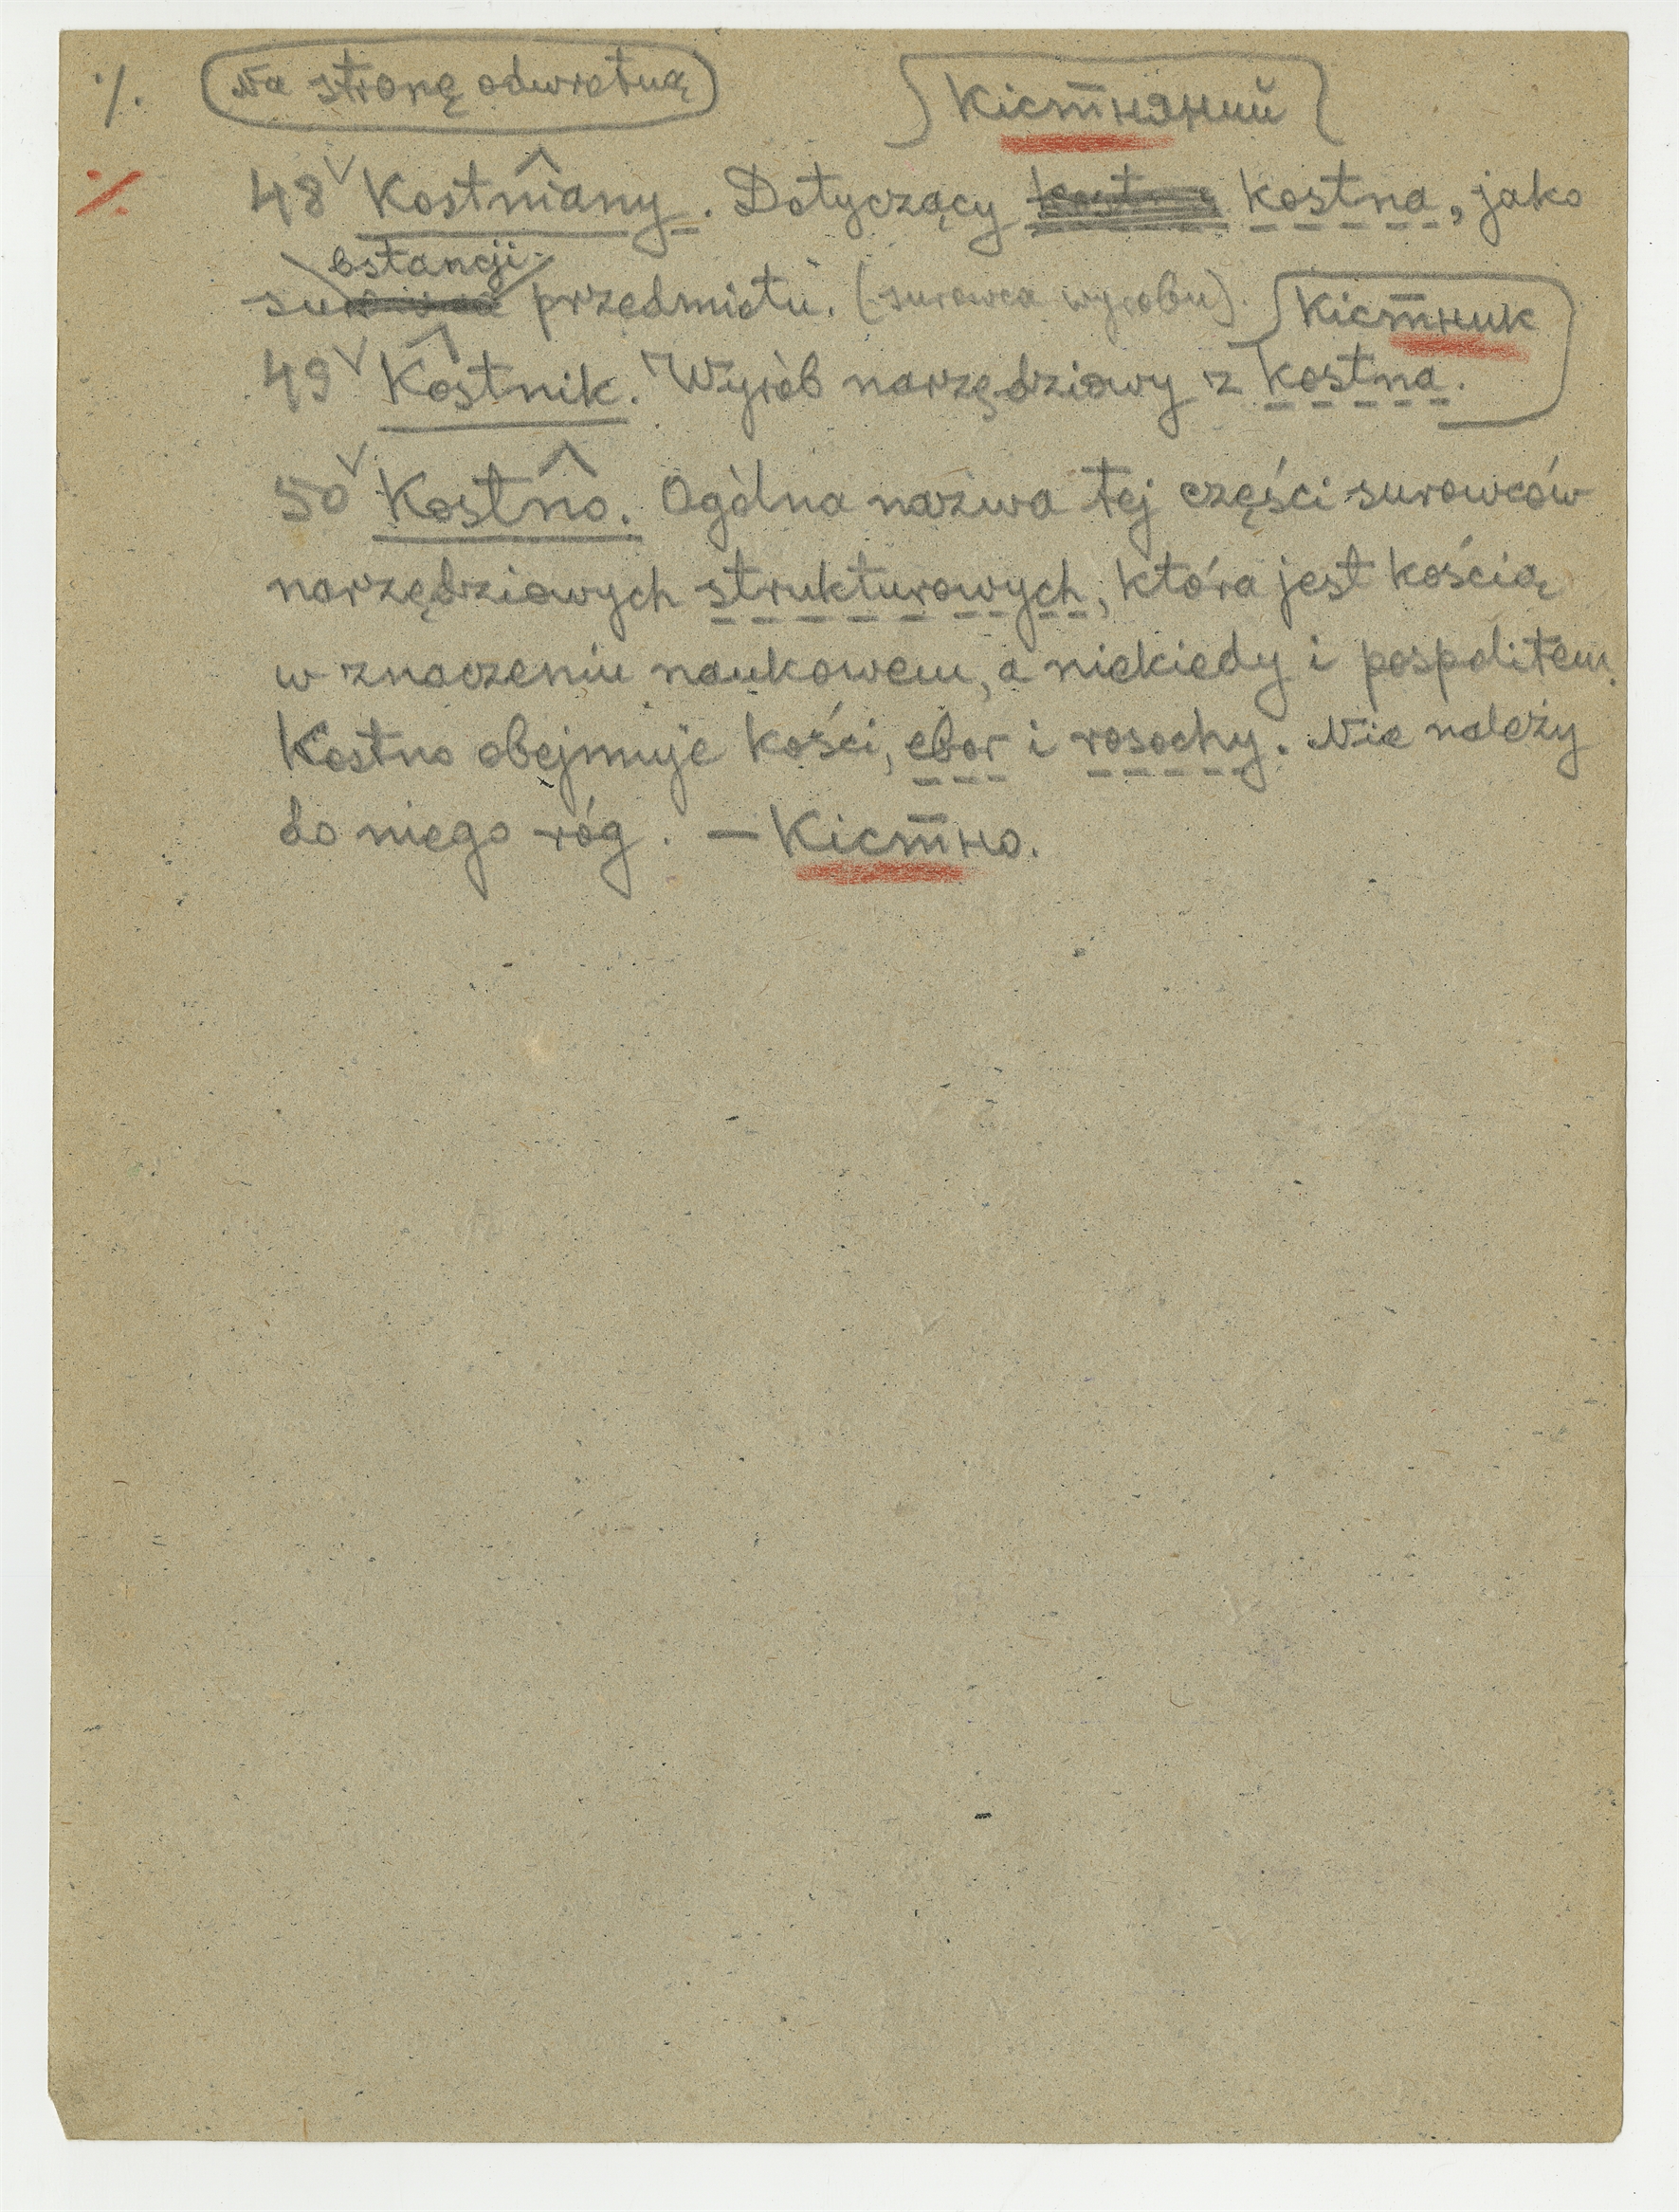 ·/. Na stronę odwrotną Кістняний
·/. 48 Kostniany. Dotyczący kostna, jako
substancji przedmiotu. (surowca wyrobu). Кістник
49 Kostnik. Wyrób narzędziowy z kostna.
50 Kostno. Ogólna nazwa tej części surowców
narzędziowych strukturowych, która jest kością
w znaczeniu naukowem, a niekiedy i pospolitem.
Kostno obejmuje kości, ebor i rosochy. Nie należy
do niego róg. — Кістно.